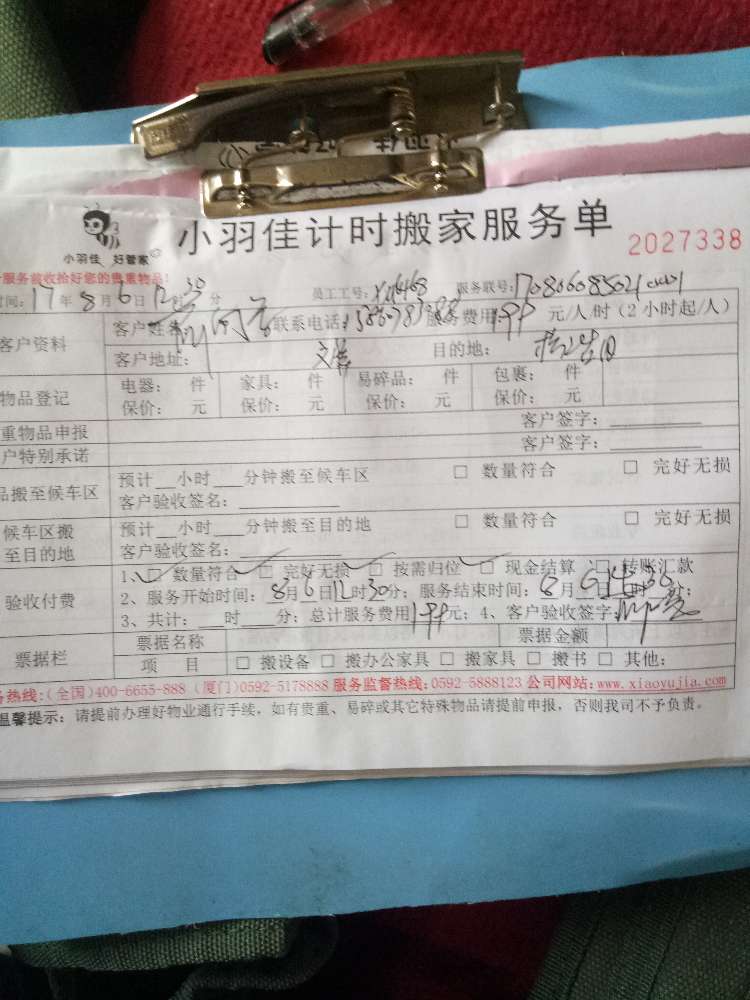 小羽佳 好管家
小羽佳计时搬家服务单
2027338
服务前收拾好您的贵重物品!
时间: 17年8月6日12时30分 员工工号: 服务联号:
客户资料 客户姓名: 联系电话: 服务费用: 199 元/人/时(2小时起/人)
客户地址: 目的地:
物品登记 电器: 件 家具: 件 易碎品: 件 包裹: 件
保价: 元 保价: 元 保价: 元 保价: 元
重物品申报 客户签字:
户特别承诺 客户签字:
品搬至候车区 预计__小时___分钟搬至候车区 □ 数量符合 □ 完好无损
客户验收签名:
候车区搬至目的地 预计__小时___分钟搬至目的地 □ 数量符合 □ 完好无损
客户验收签名:
验收付费 1、□ 数量符合 □ 完好无损 □ 按需归位 □ 现金结算 □ 转账汇款
2、服务开始时间: 8月6日12时30分; 服务结束时间: 8月6日14时30分;
3、共计: 时 分; 总计服务费用199元; 4、客户验收签字:
票据栏 票据名称 票据金额
项 目 □ 搬设备 □ 搬办公家具 □ 搬家具 □ 搬书 □ 其他:
务热线:(全国)400-6655-888 (厦门)0592-5178888 服务监督热线:0592-5888123 公司网站:www.xiaoyujia.com
温馨提示: 请提前办理好物业通行手续，如有贵重、易碎或其它特殊物品请提前申报，否则我司不予负责。